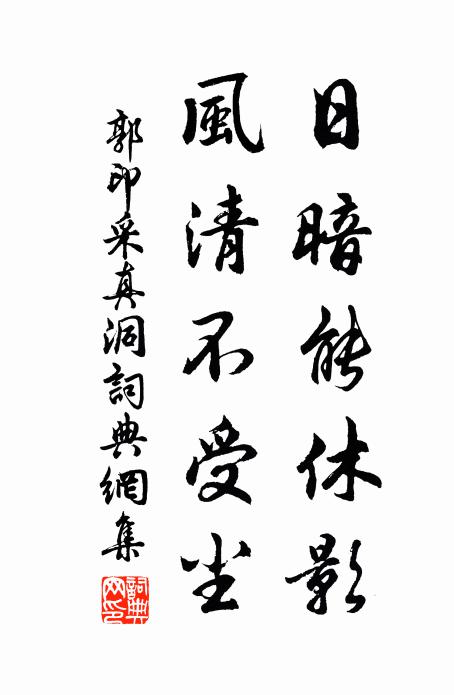 日暗能休影
風清不受尘
郭印采真洞詞典網集
詞典
网印